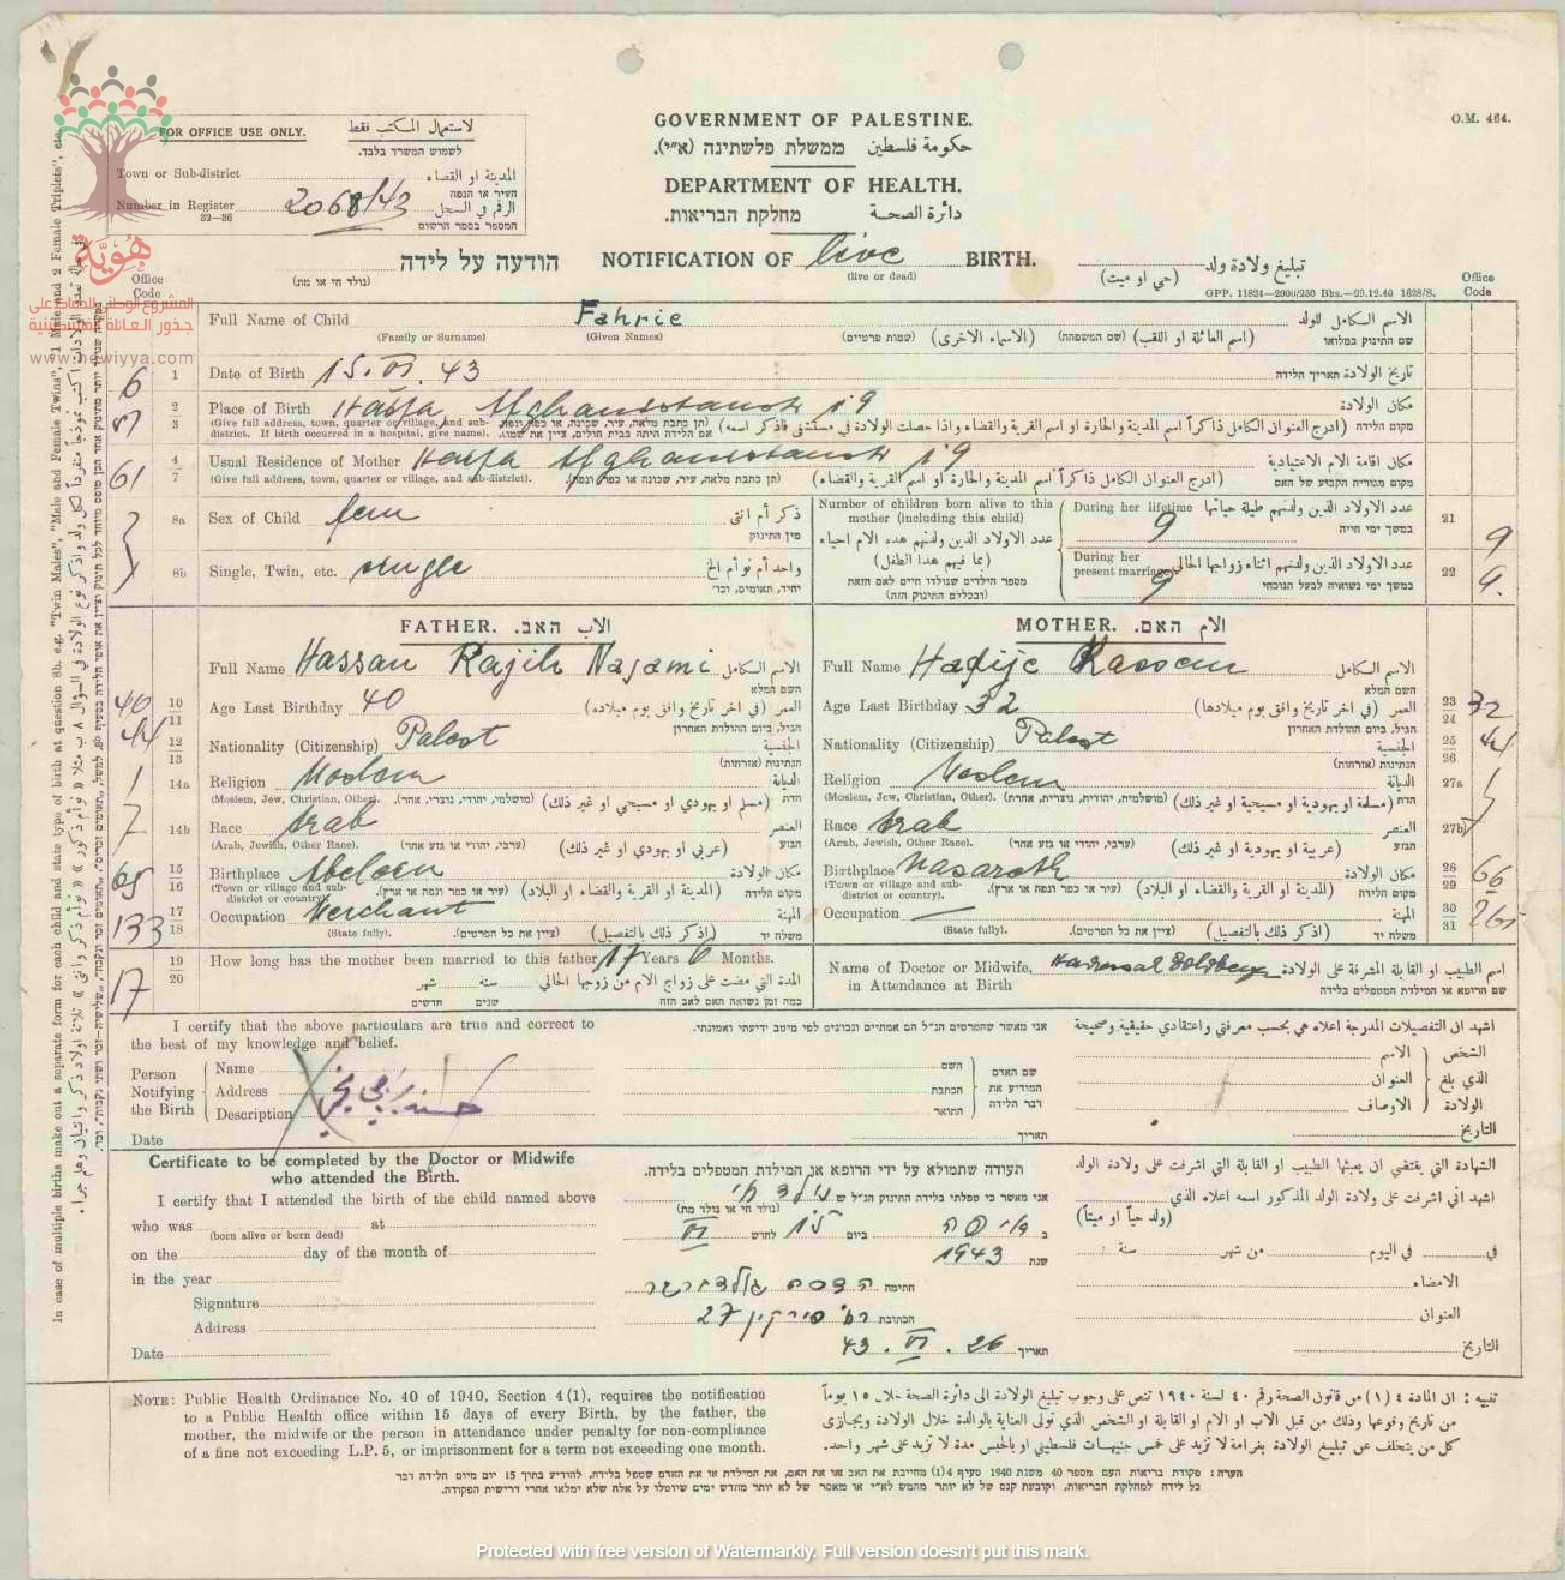 GOVERNMENT OF PALESTINE.
حكومة فلسطين ממשלת פלשתינה (א״י).
DEPARTMENT OF HEALTH.
دائرة الصحة מחלקת הבריאות.
O.M. 464.
FOR OFFICE USE ONLY. لاستعمال المكتب فقط
לשמוש המשרד בלבד.
Town or Sub-district المدينة او القضاء
העיר או הנפה
Number in Register 2068/43 الرقم في السجل
32—36 המספר בספר הרשום
هُويَّة
المشروع الوطني للحفاظ على
جذور العائلة الفلسطينية
www.howiyya.com
הודעה על לידה NOTIFICATION OF live BIRTH. تبليغ ولادة ولد
(נולד חי או מת) (live or dead) (حي او ميت)
GPP. 11824—2000/250 Bks.—29.12.40 1628/S.
Office Code
Office Code
Full Name of Child Fahrie الاسم الكامل للولد
שם התינוק במלואו
(Family or Surname) (Given Names) (שמות פרטיים) (الاسماء الاخرى) (שם המשפחה) (اسم العائلة او اللقب)
6 1 Date of Birth 15.VI.43 تاريخ الولادة תאריך הלידה
2 Place of Birth Haifa مكان الولادة
3 (Give full address, town, quarter or village, and sub-district. If birth occurred in a hospital, give name). (תן כתבת מלאה, עיר, שכונה, או כפר ונפה. אם הלידה היתה בבית חולים, ציין את שמו). (ادرج العنوان الكامل ذاكراً اسم المدينة والحارة او اسم القرية والقضاء واذا حصلت الولادة في مستشفى فاذكر اسمه) מקום הלידה
61 4 Usual Residence of Mother Haifa مكان اقامة الام الاعتيادية
7 (Give full address, town, quarter or village, and sub-district). (תן כתבת מלאה, עיר, שכונה או כפר ונפה). (ادرج العنوان الكامل ذاكراً اسم المدينة والحارة او اسم القرية والقضاء) מקום מגוריה הקבוע של האם
8a Sex of Child fem ذكر أم انثى
מין התינוק
8b Single, Twin, etc. single واحد أم توأم الخ
יחיד, תאומים, וכו׳
Number of children born alive to this mother (including this child)
عدد الاولاد الذين ولدتهم هذه الام احياء
(بما فيهم هذا الطفل)
מספר הילדים שנולדו חיים לאם הזאת
(ובכללם התינוק הזה)
During her lifetime 9 عدد الاولاد الذين ولدتهم طيلة حياتها 21 9
במשך ימי חייה
During her present marriage 9 عدد الاولاد الذين ولدتهم اثناء زواجها الحالي 22 9.
במשך ימי נשואיה לבעל הנוכחי
FATHER. האב. الاب
Full Name Hassan Rajih Nagami الاسم الكامل
השם המלא
40 10 Age Last Birthday 40 العمر (في اخر تاريخ وافق يوم ميلاده)
44 11 הגיל, ביום ההולדת האחרון
12 Nationality (Citizenship) Palest الجنسية
13 הנתינות (אזרחות)
1 14a Religion Moslem الديانة
(Moslem, Jew, Christian, Other). (מושלמי, יהודי, נוצרי, אחר). (مسلم او يهودي او مسيحي او غير ذلك) הדת
7 14b Race Arab العنصر
(Arab, Jewish, Other Race). (ערבי, יהודי או גזע אחר) (عربي او يهودي او غير ذلك) הגזע
65 15 Birthplace مكان الولادة
16 (Town or village and sub-district or country). (עיר או כפר ונפה או ארץ). (المدينة او القرية والقضاء او البلاد) מקום הלידה
133 17 Occupation Merchant المهنة
18 (State fully). (ציין את כל הפרטים). (اذكر ذلك بالتفصيل) משלח יד
MOTHER. האם. الام
Full Name Hadije Kassem الاسم الكامل
השם המלא
Age Last Birthday 32 العمر (في اخر تاريخ وافق يوم ميلادها) 23 32
הגיל, ביום ההולדת האחרון 24
Nationality (Citizenship) Palest الجنسية 25 44
הנתינות (אזרחות) 26
Religion Moslem الديانة 27a 1
(Moslem, Jew, Christian, Other). (מושלמיה, יהודית, נוצרית, אחרת). (مسلمة او يهودية او مسيحية او غير ذلك) הדת
Race Arab العنصر 27b 7
(Arab, Jewish, Other Race). (ערביה, יהודיה או גזע אחר) (عربية او يهودية او غير ذلك) הגזע
Birthplace Nasareth مكان الولادة 28 66
(Town or village and sub-district or country). (עיר או כפר ונפה או ארץ). (المدينة او القرية والقضاء او البلاد) מקום הלידה 29
Occupation — المهنة 30 265
(State fully). (ציין את כל הפרטים). (اذكر ذلك بالتفصيل) משלח יד 31
17 19 How long has the mother been married to this father 17 Years 6 Months.
20 المدة التي مضت على زواج الام من زوجها الحالي سنة شهر
כמה זמן נשואה האם לאב הזה שנים חדשים
Name of Doctor or Midwife, اسم الطبيب او القابلة المشرفة على الولادة
in Attendance at Birth שם הרופא או המילדת המטפלים בלידה
I certify that the above particulars are true and correct to the best of my knowledge and belief.
אני מאשר שהפרטים הנ״ל הם אמתיים ונכונים לפי מיטב ידיעתי ואמונתי.
اشهد ان التفصيلات المدرجة اعلاه هي بحسب معرفتي واعتقادي حقيقية وصحيحة
Person Notifying the Birth
Name השם الاسم
Address הכתבת العنوان
Description התואר الاوصاف
שם האדם המודיע את דבר הלידה
الشخص الذي بلغ الولادة
Date תאריך التاريخ
Certificate to be completed by the Doctor or Midwife who attended the Birth.
תעודה שתמולא על ידי הרופא או המילדת המטפלים בלידה.
الشهادة التي يقتضي ان يعبئها الطبيب او القابلة التي اشرفت على ولادة الولد
I certify that I attended the birth of the child named above
who was at
(born alive or born dead)
on the day of the month of
in the year
Signature
Address
Date
אני מאשר כי טפלתי בלידת התינוק הנ״ל ש נולד חי
(נולד חי או נולד מת)
ב חיפה ביום 15 לחדש VI
שנת 1943
חתימה הדסה גולדברגר
הכתובת רח׳ סירקין 27
תאריך 26.VI.43
اشهد اني اشرفت على ولادة الولد المذكور اسمه اعلاه الذي
(ولد حياً او ميتاً)
في في اليوم من شهر سنة
الامضاء
العنوان
التاريخ
NOTE: Public Health Ordinance No. 40 of 1940, Section 4(1), requires the notification
to a Public Health office within 15 days of every Birth, by the father, the
mother, the midwife or the person in attendance under penalty for non-compliance
of a fine not exceeding L.P. 5, or imprisonment for a term not exceeding one month.
تنبيه: ان المادة ٤ (١) من قانون الصحة رقم ٤٠ لسنة ١٩٤٠ تنص على وجوب تبليغ الولادة الى دائرة الصحة خلال ١٥ يوماً
من تاريخ وقوعها وذلك من قبل الاب او الام او القابلة او الشخص الذي تولى العناية بالوالدة خلال الولادة ويجازى
كل من يتخلف عن تبليغ الولادة بغرامة لا تزيد على خمس جنيهات فلسطيني او بالحبس مدة لا تزيد على شهر واحد.
הערה: פקודת בריאות העם מספר 40 משנת 1940 סעיף 4(1) מחייבת את האב או את האם, את המילדת או את האדם שטפל בלידה, להודיע בתוך 15 יום מיום הלידה דבר
כל לידה למחלקת הבריאות, וקובעת קנס של לא יותר מחמש לא״י או מאסר של לא יותר מחדש ימים שיוטלו על אלה שלא ימלאו אחרי דרישת הפקודה.
Protected with free version of Watermarkly. Full version doesn't put this mark.